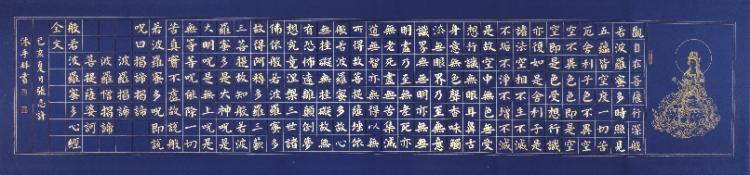 觀自在菩薩行深般
若波羅蜜多時照見
五蘊皆空度一切苦
厄舍利子色不異空
空不異色色即是空
空即是色受想行識
亦復如是舍利子是
諸法空相不生不滅
不垢不淨不增不減
是故空中無色無受
想行識無眼耳鼻舌
身意無色聲香味觸
法無眼界乃至無意
識界無無明亦無無
明盡乃至無老死亦
無老死盡無苦集滅
道無智亦無得以無
所得故菩提薩埵依
般若波羅蜜多故心
無罣礙無罣礙故無
有恐怖遠離顛倒夢
想究竟涅槃三世諸
佛依般若波羅蜜多
故得阿耨多羅三藐
三菩提故知般若波
羅蜜多是大神呪是
大明呪是無上呪是
無等等呪能除一切
苦真實不虛故說般
若波羅蜜多呪即說
呪曰揭諦揭諦
波羅揭諦
波羅僧揭諦
菩提薩婆訶
般若波羅蜜多心經
全文
己亥夏月張志
沐手拜書